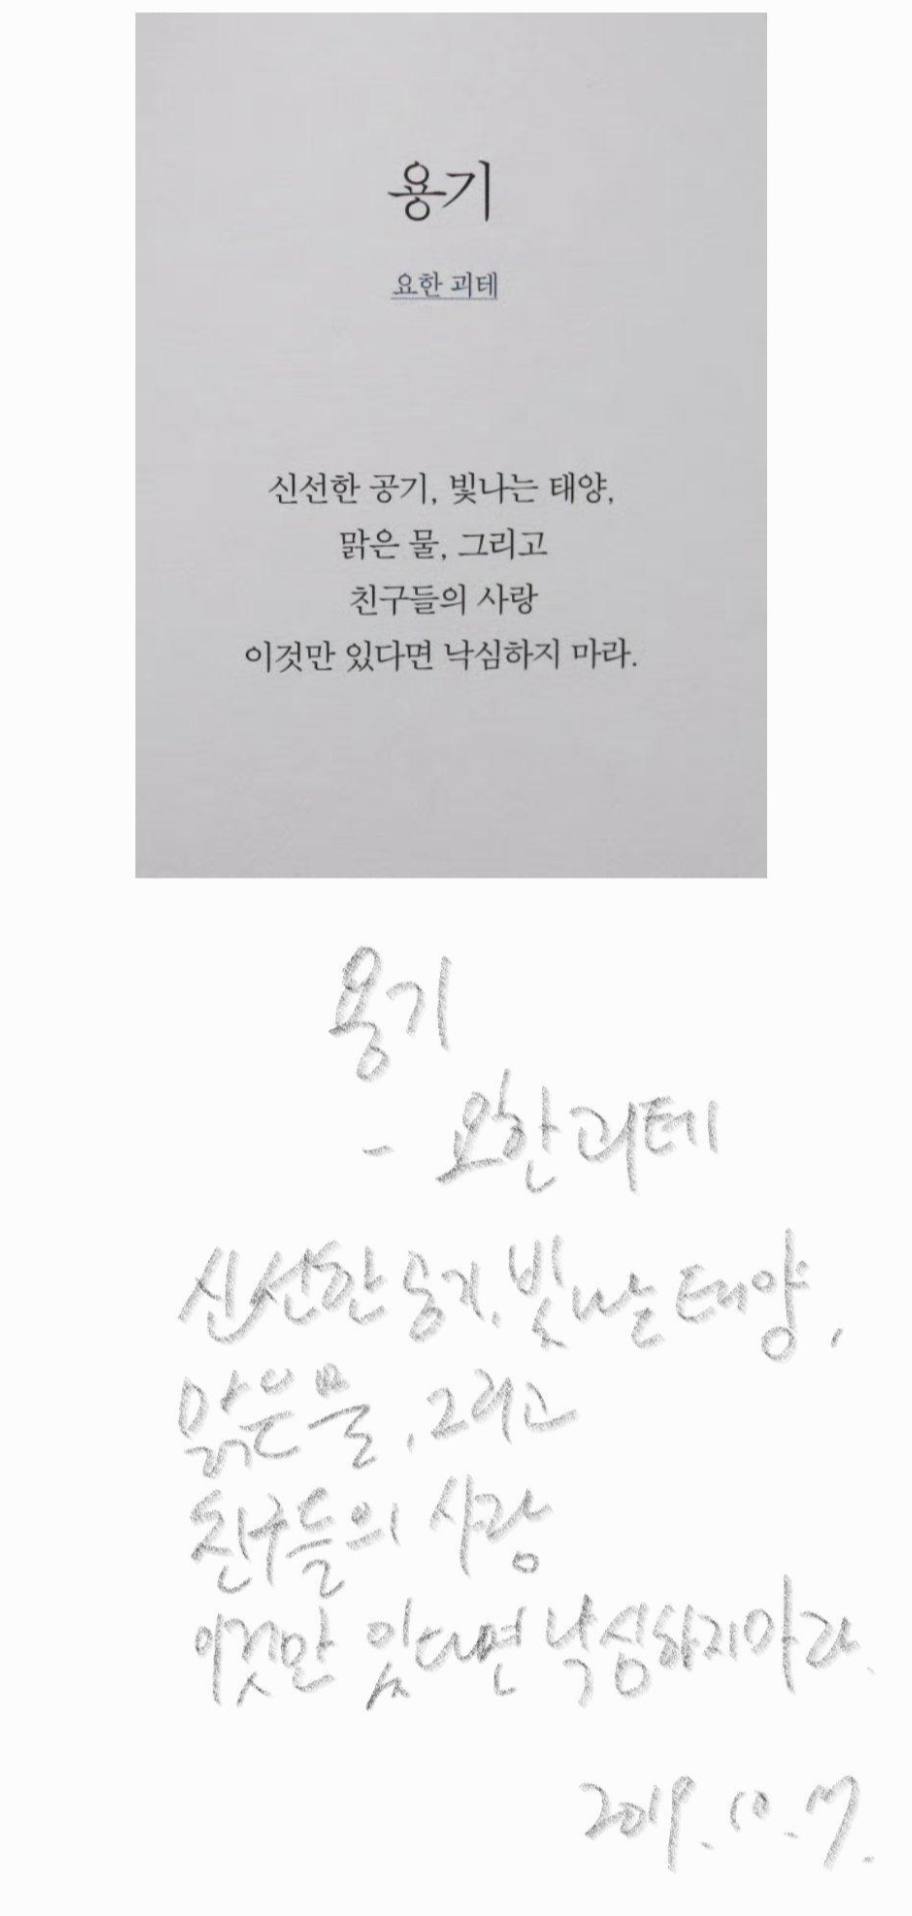 용기
요한 괴테
신선한 공기, 빛나는 태양,
맑은 물, 그리고
친구들의 사랑
이것만 있다면 낙심하지 마라.
용기
- 요한 괴테
신선한 공기, 빛나는 태양,
맑은 물, 그리고
친구들의 사랑
이것만 있다면 낙심하지 마라.
2019. 10. 7.